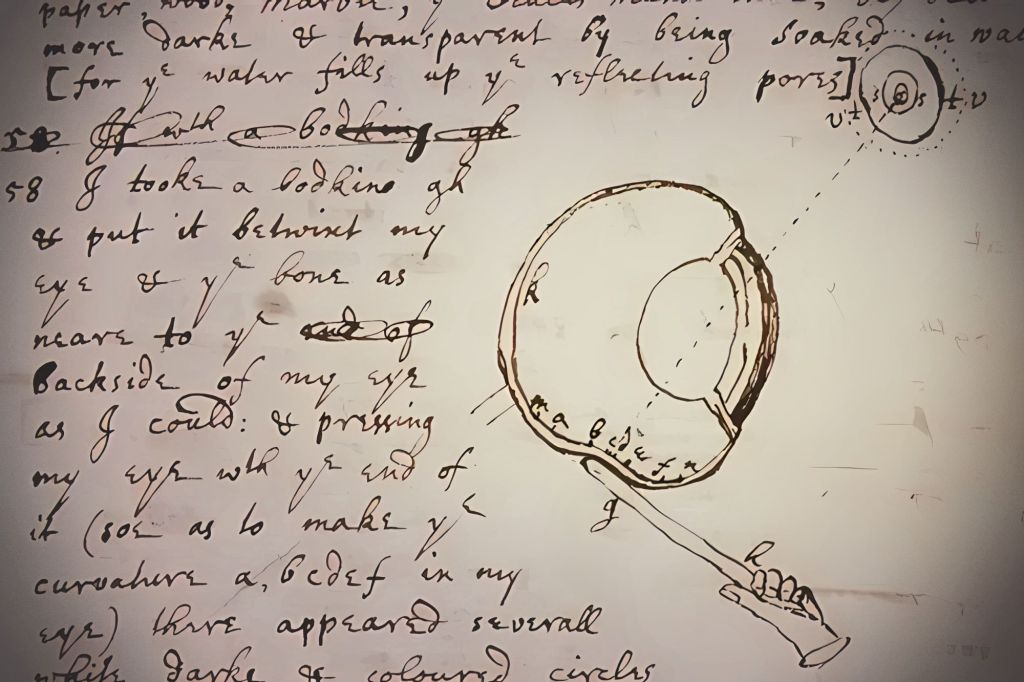 paper, wood, marble, yͤ
more darke & transparent by being soaked in
[for yͤ water fills up yͤ reflecting pores]
v t s s t v
58 If wth a bodking gh
58 I tooke a bodkine gh
& put it betwixt my
eye & yͤ bone as
neare to yͤ end of
backside of my eye
as I could: & pressing
my eye wth yͤ end of
it (soe as to make yͤ
curvature a, bcdef in my
eye) there appeared severall
white darke & coloured circles
k
m a b c d e f n
g
h